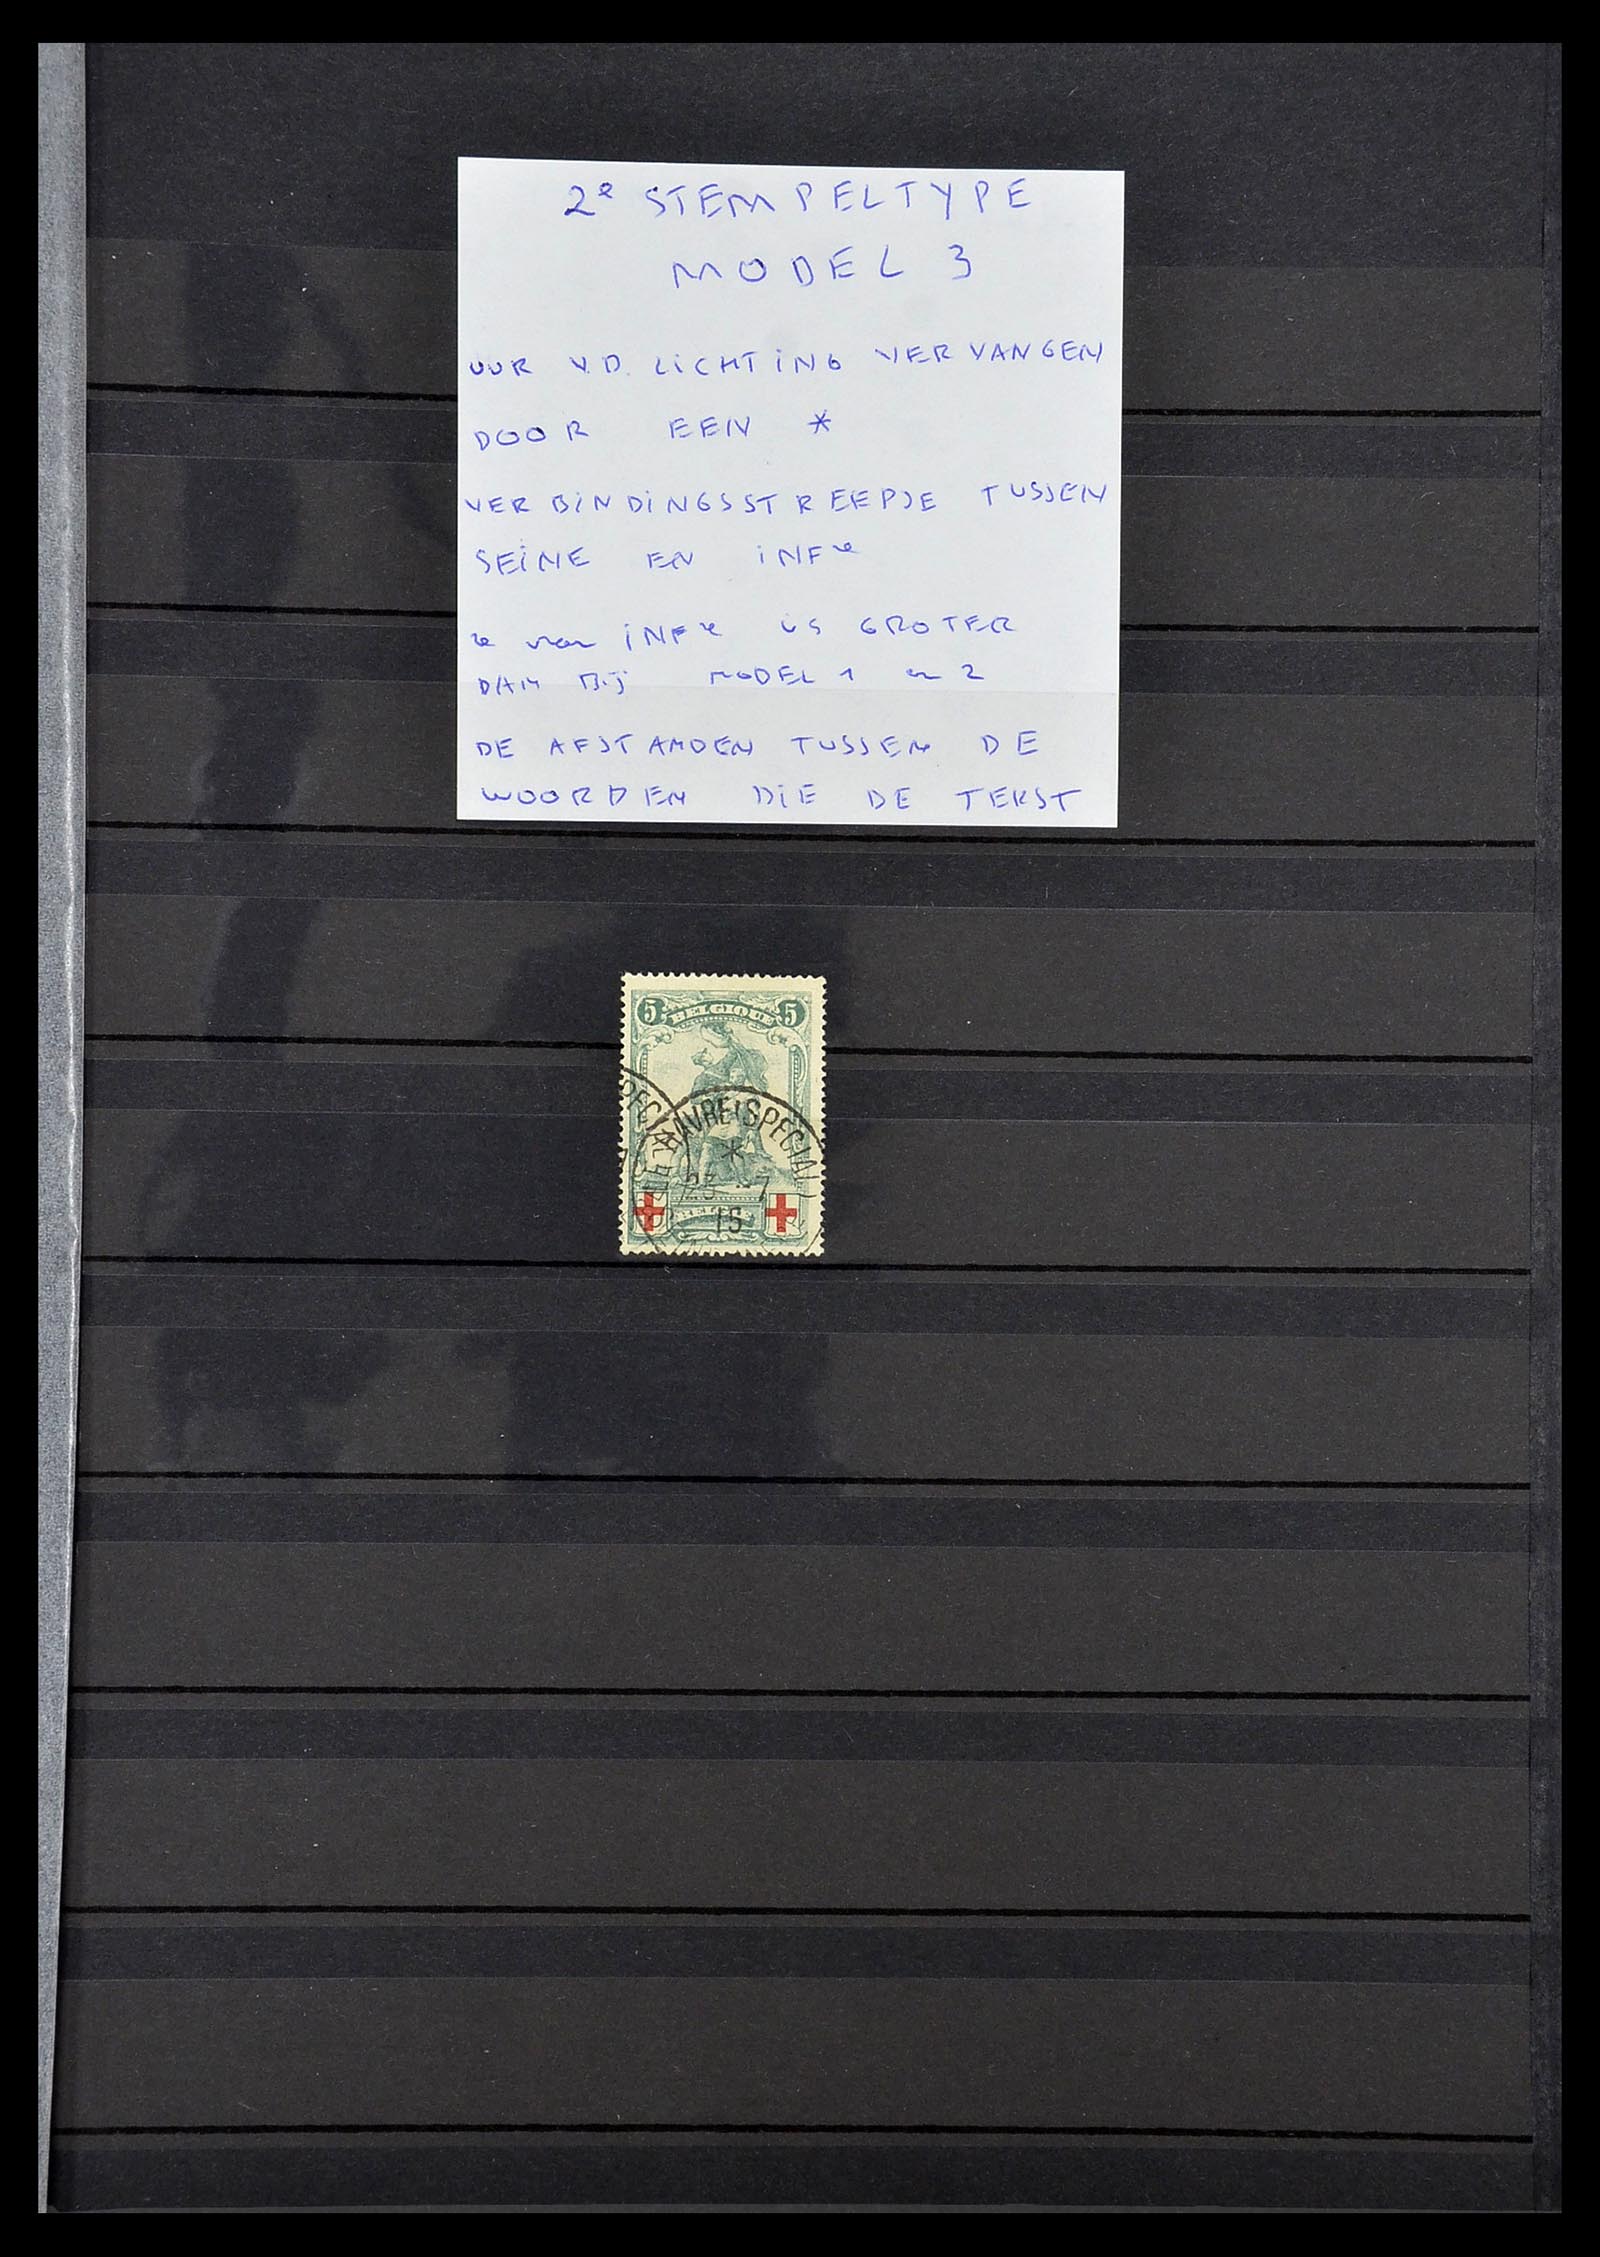 2e STEMPELTYPE
MODEL 3
UUR V.D. LICHTING VERVANGEN
DOOR EEN *
VERBINDINGSSTREEPJE TUSSEN
SEINE EN INFre
re van INFre is GROTER
DAN Bij MODEL 1 en 2
DE AFSTANDEN TUSSEN DE
WOORDEN DIE DE TEKST
5 BELGIQUE 5
HAVRE (SPECIAL)
*
23 7
15
BELGIE
SPECIAL